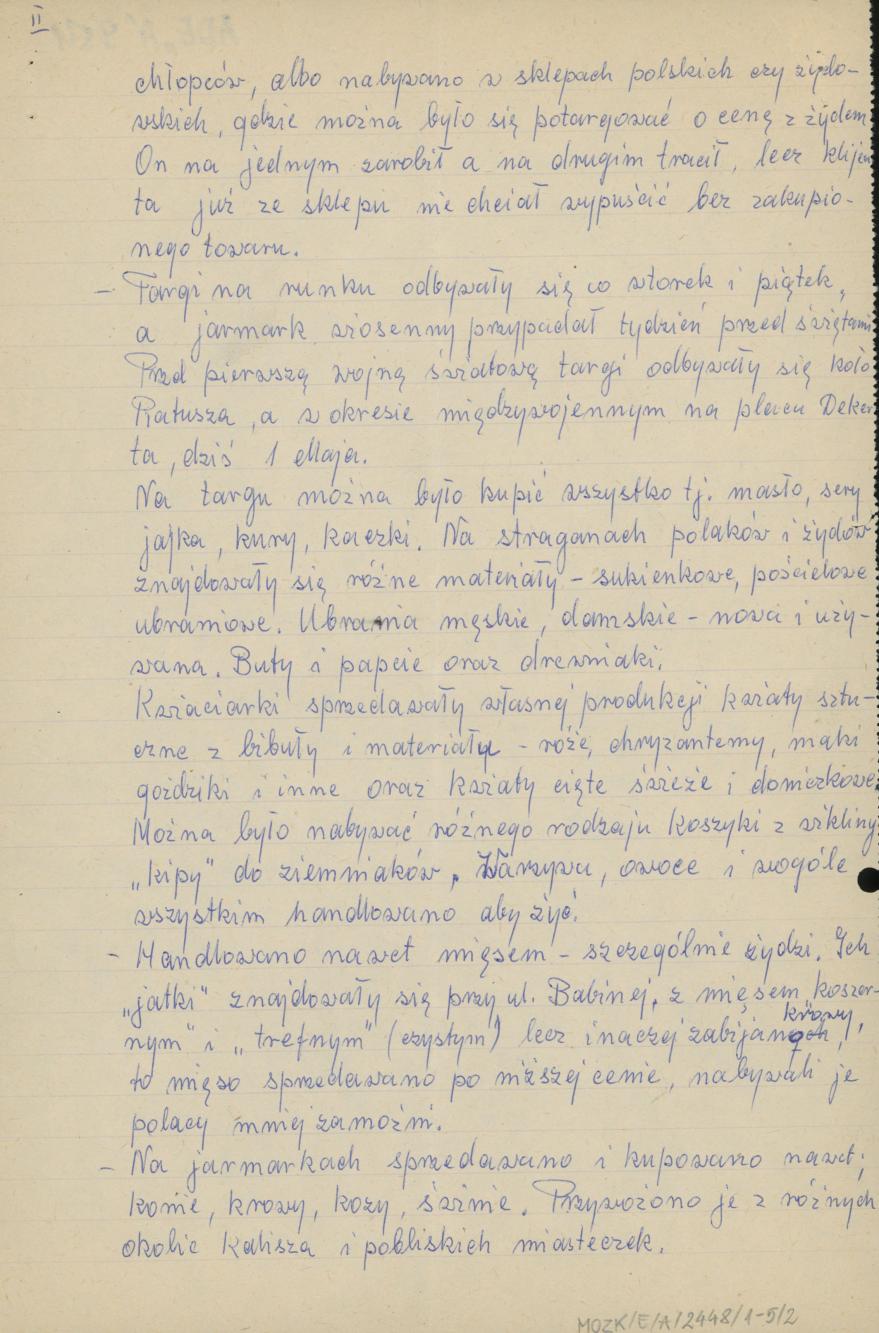 II
chłopców, albo nabywano w sklepach polskich czy żydo-
wskich, gdzie można było się potargować o cenę z żydem
On na jednym zarobił a na drugim tracił, lecz klijen
ta już ze sklepu nie chciał wypuścić bez zakupio-
nego towaru.
– Targi na runku odbywały się co wtorek i piątek,
a jarmark wiosenny przypadał tydzień przed świętami
Przed pierwszą wojną światową targi odbywały się koło
Ratusza, a w okresie międzywojennym na placu Deker
ta, dziś 1 Maja.
Na targu można było kupić wszystko tj. masło, sery
jajka, kury, kaczki. Na straganach polaków i żydów
znajdowały się różne materiały – sukienkowe, pościelowe
ubraniowe. Ubrania męskie, damskie – nowa i uży-
wana. Buty i papcie oraz drewniaki.
Kwiaciarki sprzedawały własnej produkcji kwiaty sztu-
czne z bibuły i materiału – róże, chryzantemy, maki
goździki i inne oraz kwiaty cięte świeże i doniczkowe
Można było nabywać różnego rodzaju koszyki z wikliny
„kipy” do ziemniaków. Warzywa, owoce i wogóle
wszystkim handlowano aby żyć.
– Handlowano nawet mięsem – szczególnie żydzi. Ich
„jatki” znajdowały się przy ul. Babinej, z mięsem „koszer-
nym” i „trefnym” (czystym) lecz inaczej zabijaną krowy,
to mięso sprzedawano po niższej cenie, nabywali je
polacy mniej zamożni.
– Na jarmarkach sprzedawano i kupowano nawet;
konie, krowy, kozy, świnie. Przywożono je z różnych
okolic Kalisza i pobliskich miasteczek.
MOZK/E/A/2448/1-5/2